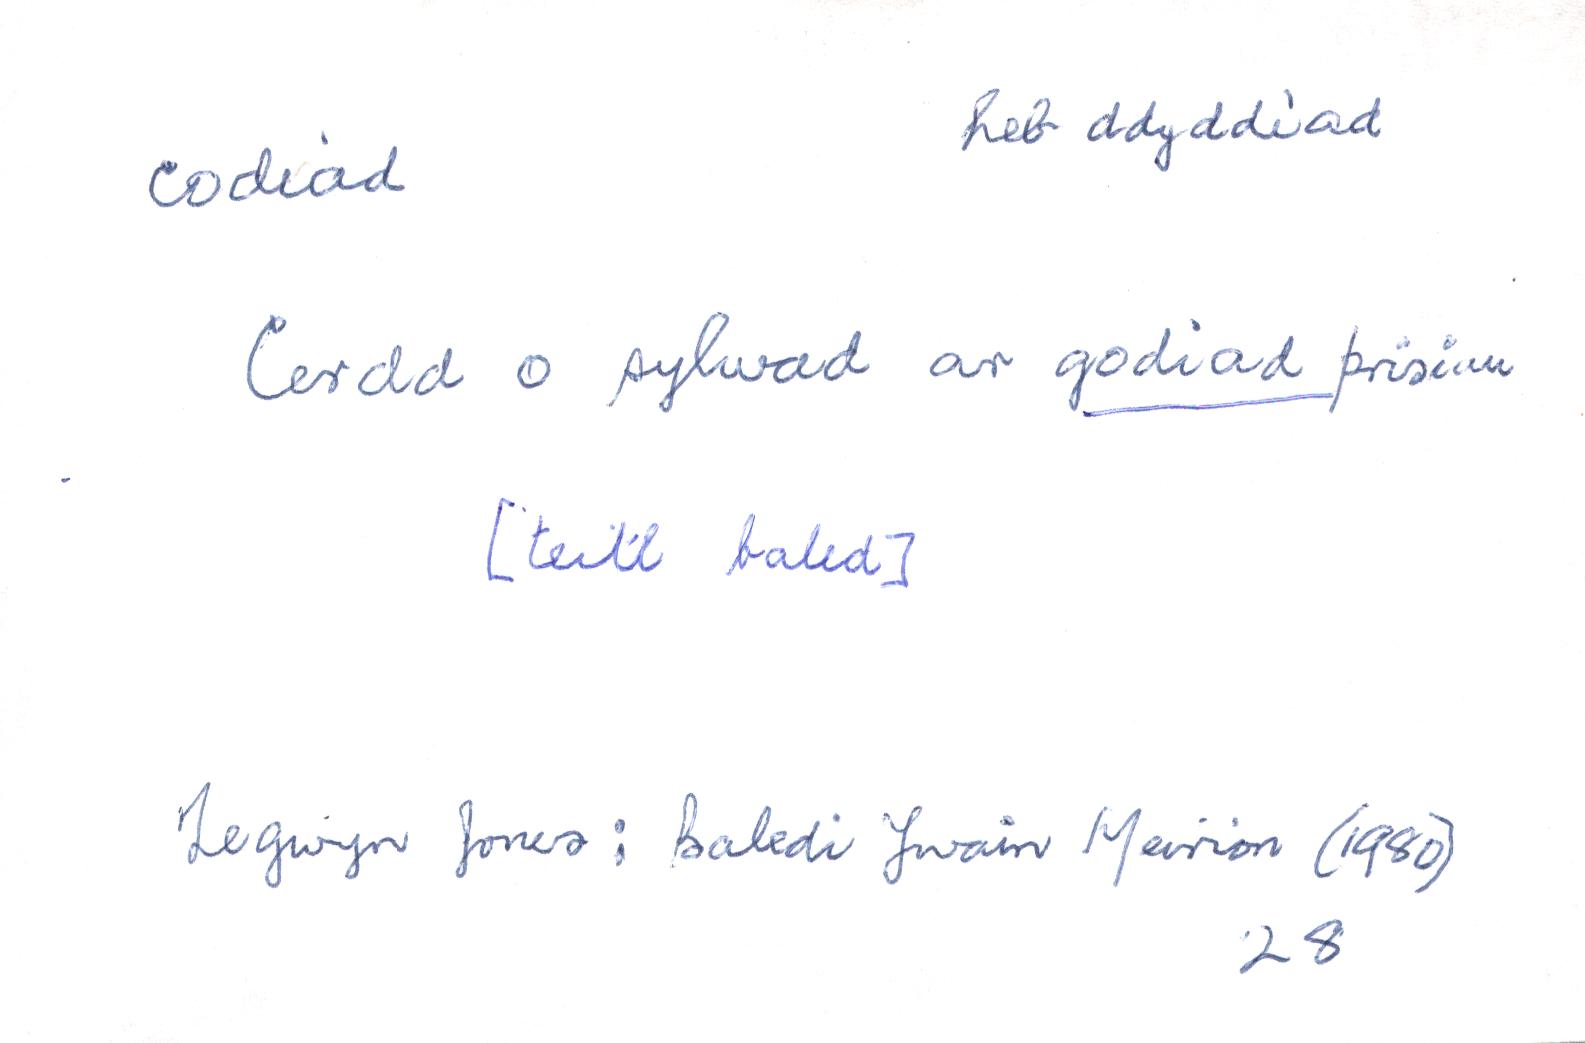 heb ddyddiad
codiad
Cerdd o sylwad ar godiad prisiau
[teitl baled]
Tegwyn Jones; Baledi Ywain Meirion (1980)
28